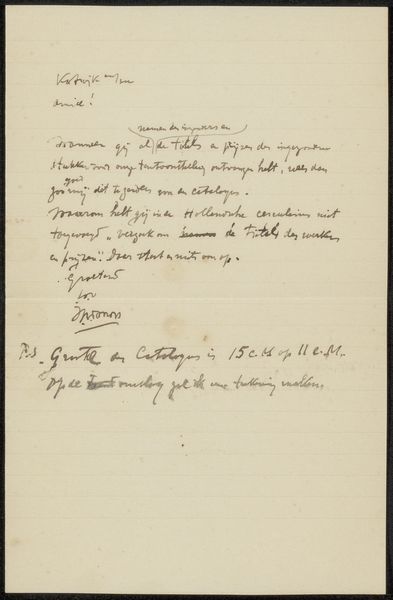 Katwijk a/m
Amice!
namen der inzenders en
Wanneer gij al de titels en prijzen der ingezonden
stukken voor onze tentoonstelling ontvangen hebt, wees dan
zoo goed mij dit te zenden voor den catalogus.
Waarom hebt gij in de Hollandsche circulaires niet
toegevoegd „verzoek om de titels der werken
en prijzen". Daar staat er niets van op.
Groetend
tav
P.S. Grootte der Catalogus is 15 c.M op 11 c.M.
op de omslag zal ik een teekening maken.